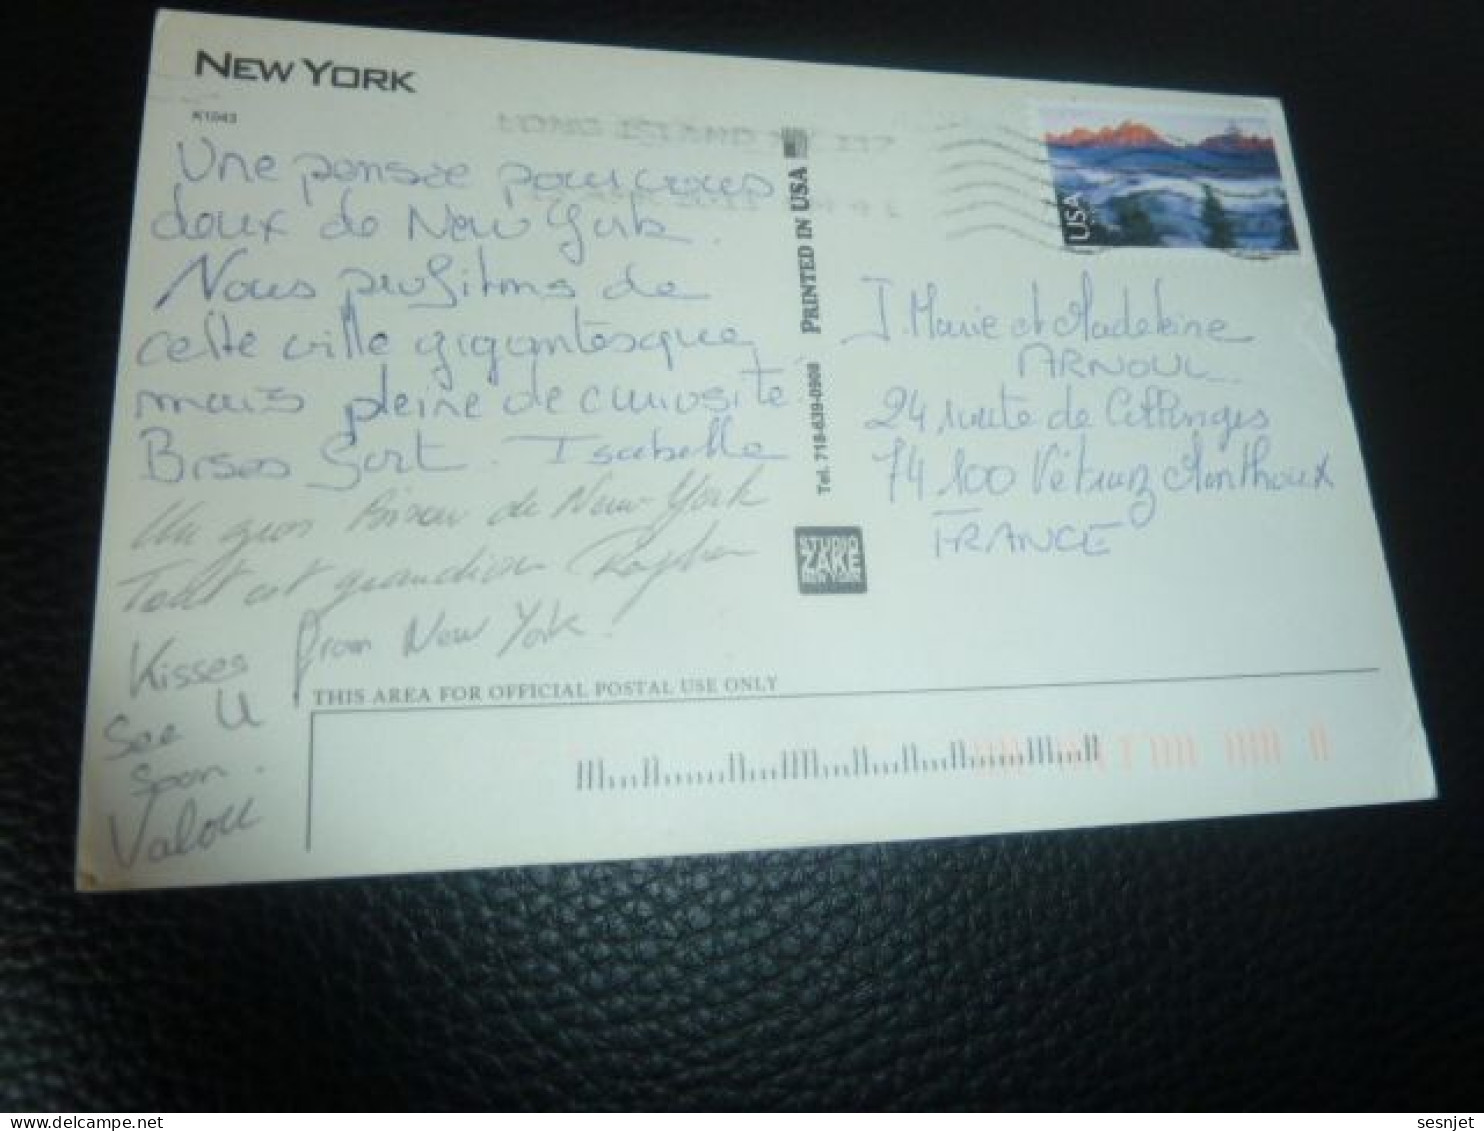 NEW YORK
K1043
LONG ISLAND NY 117
Une pensée pour vous
doux de New York.
Nous profitons de
cette ville gigantesque
mais pleine de curiosité.
Bises Sort. Isabelle
Un gros Bisou de New-York
Tout est grandiose
Kisses from New York!
See U
Soon.
Valou
PRINTED IN USA
Tel. 718-639-0908
STUDIO
ZAKE
NEW YORK
USA
J. Marie et Madeleine
ARNOUL
24 route de Collonges
74100 Vétraz Monthoux
FRANCE
THIS AREA FOR OFFICIAL POSTAL USE ONLY
sesnjet